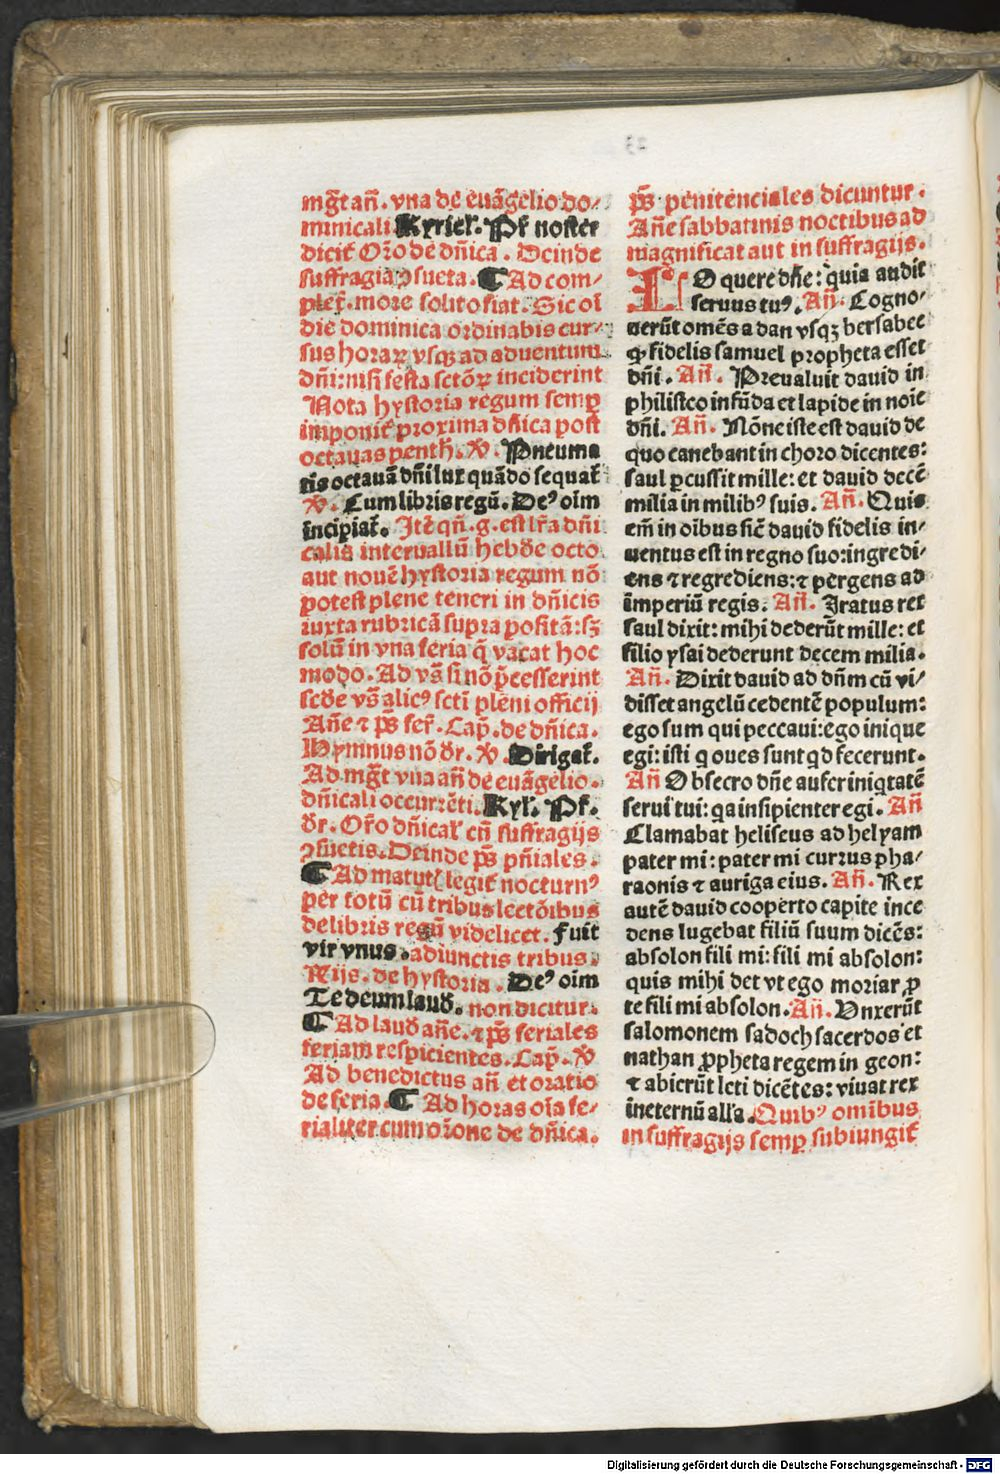 mg̃t añ. vna de euãgelio do⸗
minicali Kyriel̕. Pr̃ noster
dicit̃ Oro᷑ de dñica. Deinde
suffragia ꝯsueta. ¶ Ad com⸗
plet̕. more solito fiat. Sic oĩ
die dominica ordinabis cur⸗
sus horaꝝ vsqꝫ ad aduentum
dñi: nisi festa sctõꝝ inciderint
Nota hystoria regum semꝑ
imponit̃ proxima dñica post
octauas penth̕. ℣. Pneuma
tis octauã dñi lux quãdo sequat̃
℣. Cum libris regũ. Deꝰ oĩm
incipiat̃. Itẽ qñ .g. est lr̃a dñi
calis interuallũ hebð̕e octo
aut nouẽ hystoria regum nõ
potest plene teneri in dñicis
iuxta rubricã supra positã: sꝫ
solũ in vna feria q̃ vacat hoc
modo. Ad vs̃ si nõ p̃cesserint
scð̕e vs̃ alicꝰ scti pleni officij
Añe ⁊ ps̃ fer̕. Cap̃. de dñica.
Hymnus nõ dr̃. ℣. Dirigat̃.
Ad mg̃t vna añ de euãgelio.
dñicali occurrẽti. Kyr̕. Pr̃.
dr̃. Oro᷑ dñical̕ cũ suffragijs
ꝯsuetis. Deinde ps̃ pñiales.
¶ Ad matut̕ legit̃ nocturnꝰ
per totũ cũ tribus lectõibus
de libris regũ videlicet. Fuit
vir vnus. adiunctis tribus
Rijs. de hystoria. Deꝰ oĩm
Te deum laud̕. non dicitur.
¶ Ad laud̕ añe. ⁊ ps̃ feriales
feriam respicientes. Cap̃. ℣
Ad benedictus añ et oratio
de feria. ¶ Ad horas oĩa fe⸗
rialiter cum orõne de dñica.
ps̃ penitenciales dicuntur.
Añe sabbatinis noctibus ad
magnificat aut in suffragijs.
LO quere dñe: quia audit
seruus tuꝰ. Añ. Cogno⸗
uerũt omẽs a dan vsqꝫ bersabee
ꝙ fidelis samuel propheta esset
dñi. Añ. Preualuit dauid in
philisteo in fũda et lapide in noĩe
dñi. Añ. Nõne iste est dauid de
quo canebant in choro dicentes:
saul ꝑcussit mille: et dauid decẽ
milia in milibꝰ suis. Añ. Quis
em̃ in oĩbus sic̃ dauid fidelis in⸗
uentus est in regno suo: ingredi⸗
ens ⁊ regrediens: ⁊ pergens ad
imperiũ regis. Añ. Iratus rex
saul dixit: mihi dederũt mille: et
filio ysai dederunt decem milia.
Añ. Dixit dauid ad dñm cũ vi⸗
disset angelũ cedentẽ populum:
ego sum qui peccaui: ego inique
egi: isti q̇ oues sunt qd̕ fecerunt.
Añ Obsecro dñe aufer iniq̇tatẽ
serui tui: qa insipienter egi. Añ
Clamabat heliseus ad helyam
pater mi: pater mi currus pha⸗
raonis ⁊ auriga eius. Añ. Rex
autẽ dauid cooperto capite ince
dens lugebat filiũ suum dicẽs:
absolon fili mi: fili mi absolon:
quis mihi det vt ego moriar ꝓ
te fili mi absolon. Añ. Vnxerũt
salomonem sadoch sacerdos et
nathan ꝓpheta regem in geon:
⁊ abierũt leti dicẽtes: viuat rex
in eternũ all̃a. Quibꝰ omĩbus
in suffragijs semꝑ subiungit̃
Digitalisierung gefördert durch die Deutsche Forschungsgemeinschaft - DFG